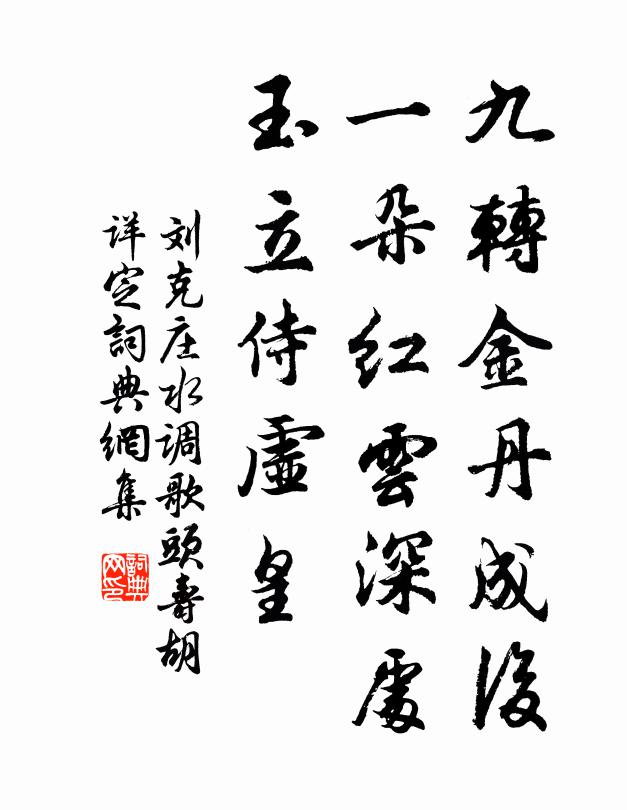 九轉金丹成後
一朵紅雲深處
玉立侍虛皇
刘克庄水调歌頭壽胡
详定詞典網集
詞典网印